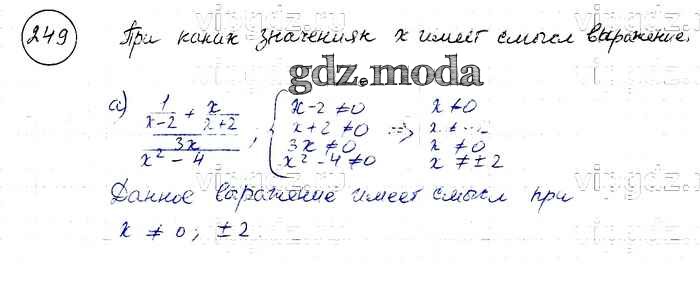 249 При каких значениях x имеет смысл выражение.
gdz.moda
а) (1/(x-2) + x/(x+2)) / (3x/(x²-4)) ; { x-2 ≠ 0 => x ≠ 0
x+2 ≠ 0
3x ≠ 0 x ≠ 0
x²-4 ≠ 0 x ≠ ±2
Данное выражение имеет смысл при
x ≠ 0; ±2.